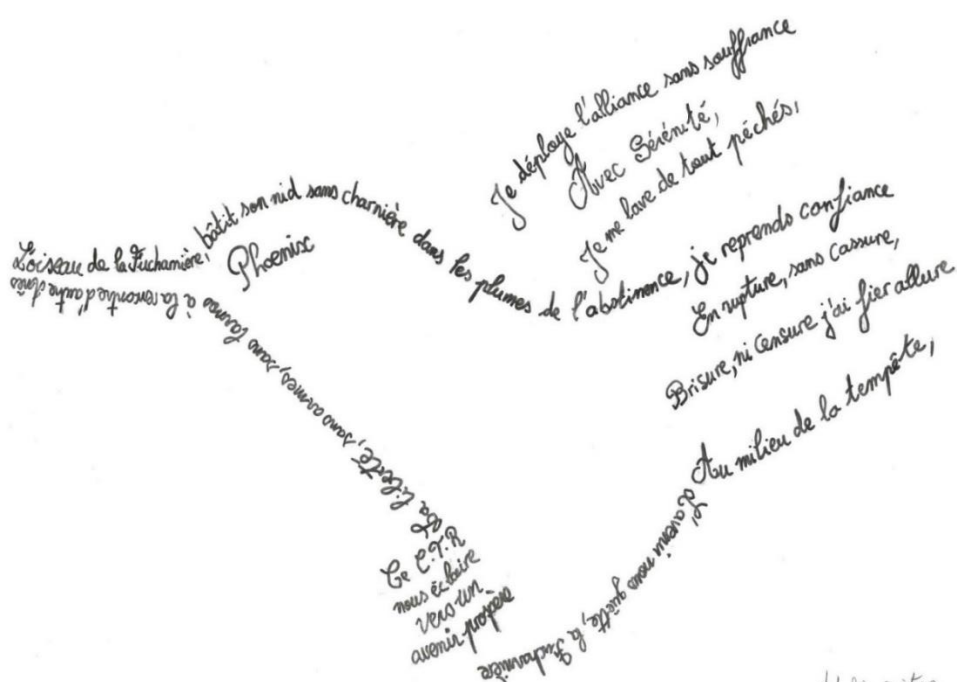 L'oiseau de la Fuchamière,
bâtit son nid sans charnière dans les plumes de l'abstinence, je reprends confiance
Phoenix
Je déploye l'alliance sans souffrance
Avec Sérénité,
Je me lave de tout péchés,
En rupture, sans cassure,
Brisure, ni censure j'ai fier allure
Au milieu de la tempête,
L'avenir nous guètte, la Fuchamière
Le C.T.R
nous éclaire
vers un
avenir prospère
La liberté, sans armes, sans larmes
à la rencontre d'autre